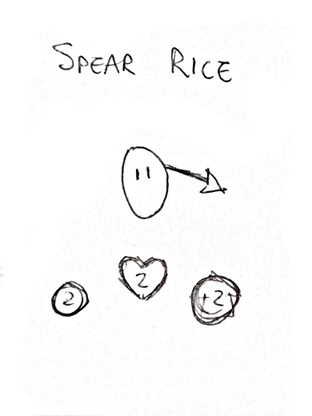 SPEAR RICE
2
2
+2